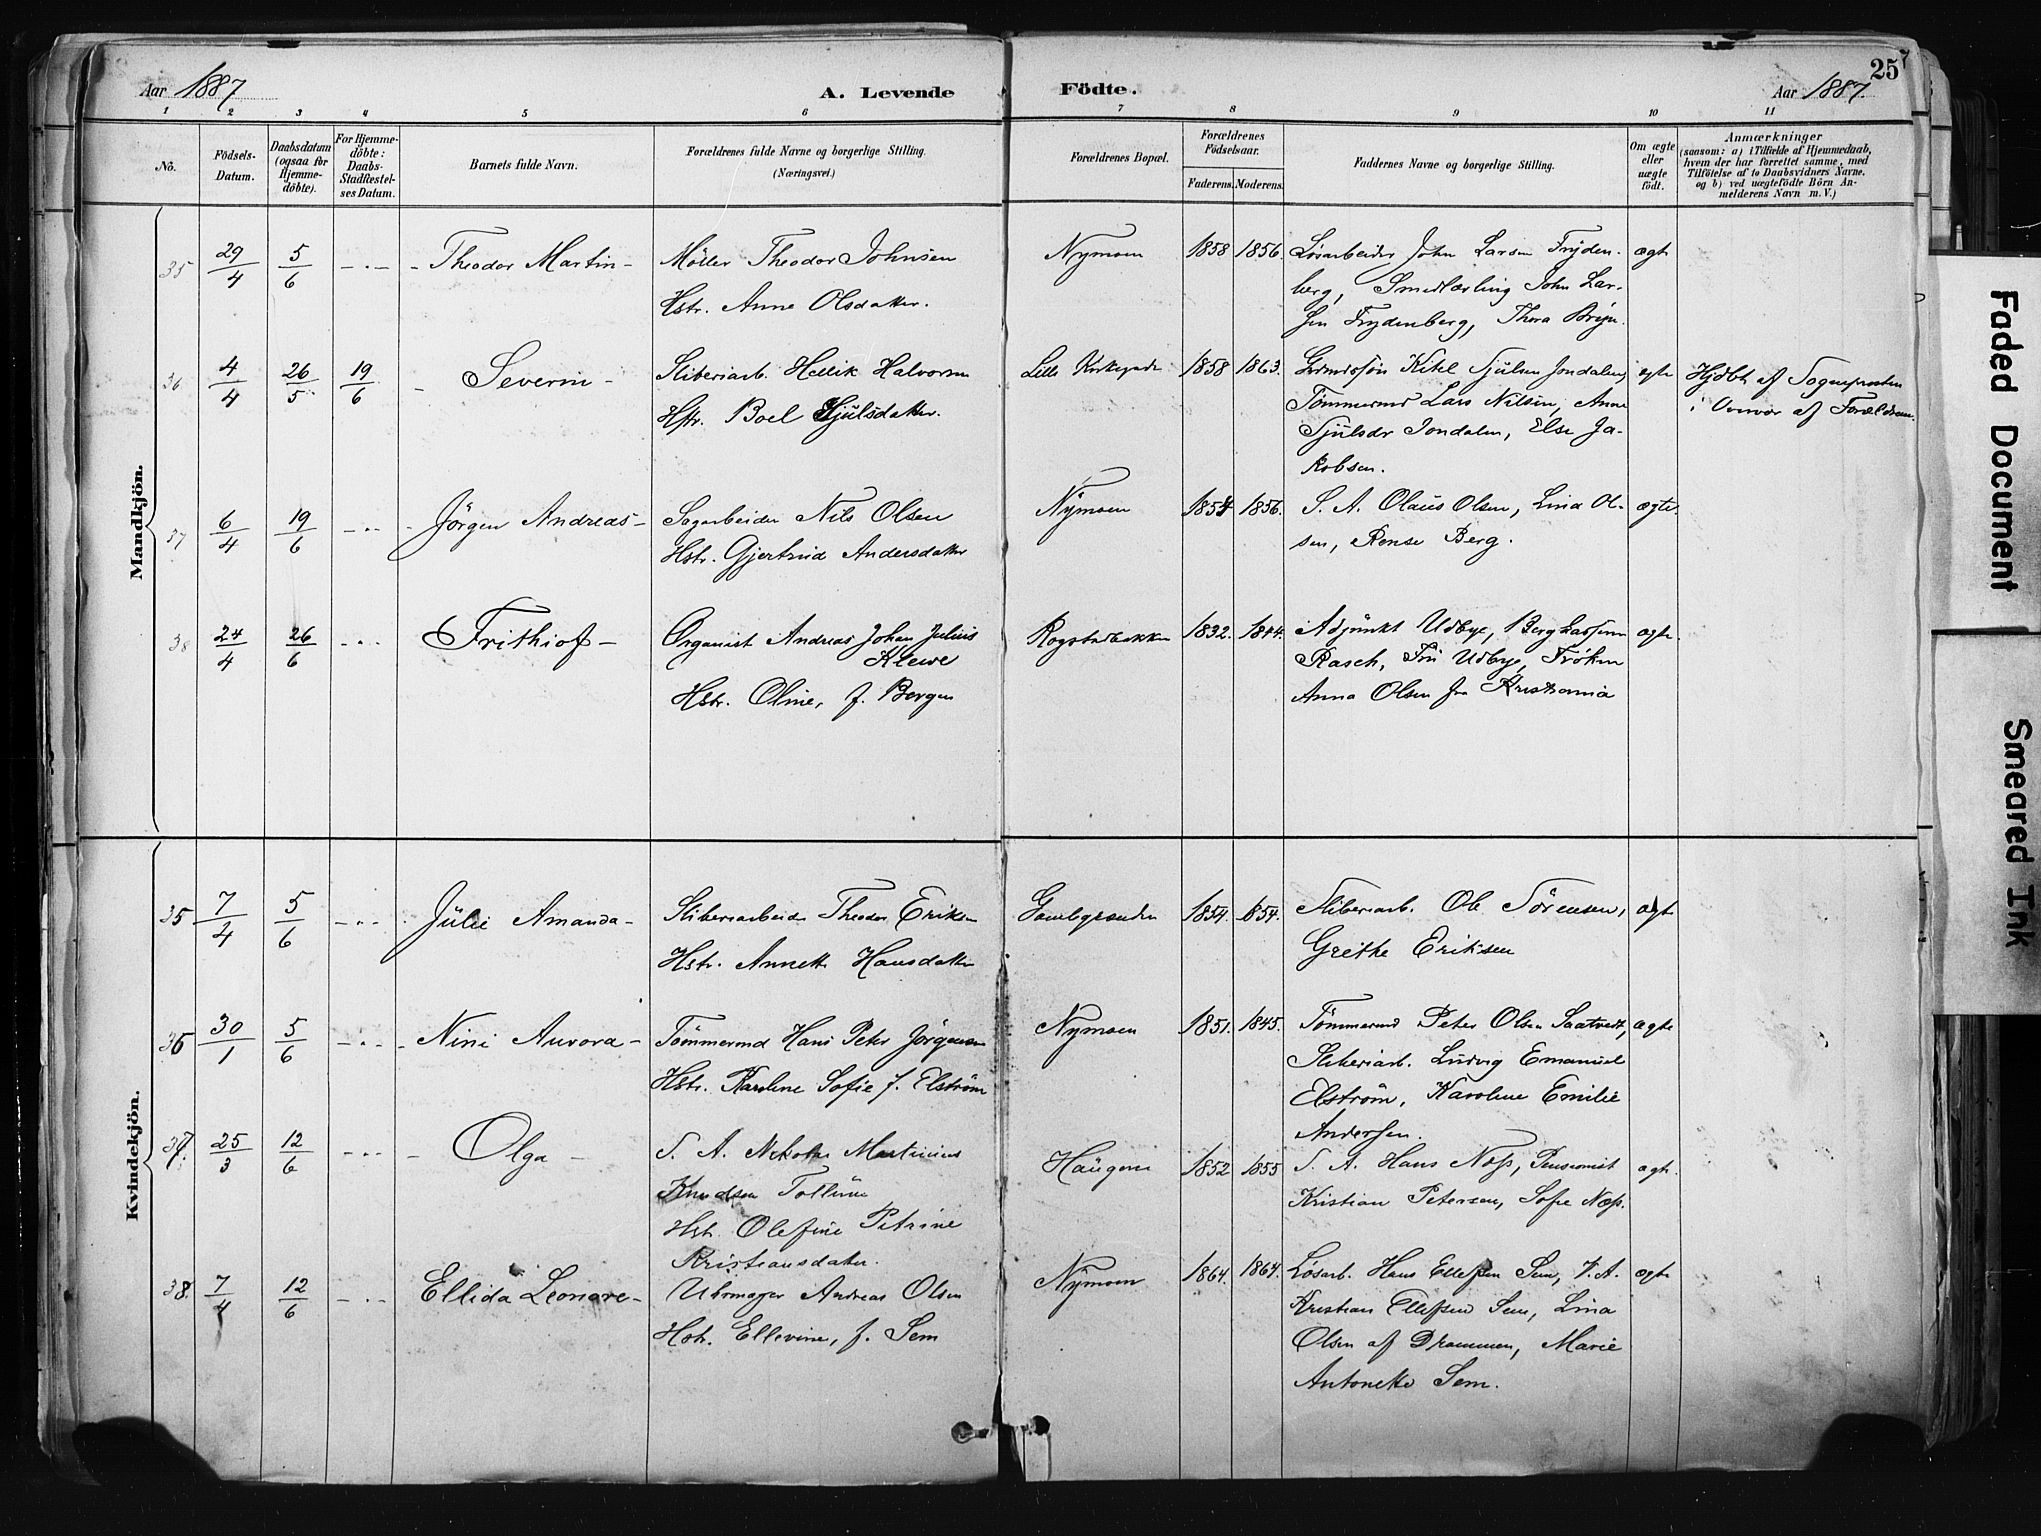 Aar 1887
A. Levende
Födte.
Aar 1887.
25
1 2 3 4 5 6 7 8 9 10 11
No.
Födsels-
Datum.
Daabsdatum
(ogsaa for
Hjemme-
döbte).
For Hjemme-
döbte:
Daabs-
Stadfæstel-
ses Datum.
Barnets fulde Navn.
Forældrenes fulde Navne og borgerlige Stilling.
(Næringsvei.)
Forældrenes Bopæl.
Forældrenes
Födselsaar.
Faderens. Moderens.
Faddernes Navne og borgerlige Stilling.
Om ægte
eller
uægte
født.
Anmærkninger
(saasom: a) i Tilfælde af Hjemmedaab,
hvem der har forrettet samme, med
Tilföielse af to Daabsvidners Navne,
og b) ved uægtefödte Börn An-
melderens Navn m. V.)
Mandkjön.
35 29/4 5/6 Theodor Martin Möller Theodor Johnsen Nymoen 1858 1856. Lösarbeider John Larsen Fryden- ægte
Hstr. Anne Olsdatter.
berg, Smedlærling John Lar-
sen Frydenberg, Thora
36 4/4 26/5 19/6 Severin Sliberiarb. Hellik Halvorsen Lille Kirkegade 1858 1863. Kitel Sjulsen Jondalen, ægte Hjdbt af Sognepresten
Hstr. Boel Sjulsdatter.
Tömmermd Lars Nilsen, Anne
i Overvær af Forældrene.
Sjulsdr Jondalen, Else Ja-
kobsen.
37 6/4 19/6 Jörgen Andreas Sagarbeider Nils Olsen Nymoen 1854 1856. S. A. Olaus Olsen, Lina Ol- ægte.
Hstr. Gjertrud Andersdatter
sen, Rense Berg.
38 24/4 26/6 Frithiof Organist Andreas Johan Julius Rogstadbakken 1832. 1844. Adjunkt Udbye, ægte.
Klewe
Rasch, Fru Udbye, Fröken
Hstr. Oline, f. Bergan
Anna Olsen fra Kristiania
Kvindekjön.
35 7/4 5/6 Julie Amanda Sliberiarbeider Theodor Eriksen 1854. 1854. Sliberiarb. Ole Sörensen, ægte
Hstr. Annette Hansdatter
Grethe Eriksen
36 30/1 5/6 Nini Aurora Tömmermd Hans Peter Jörgensen Nymoen 1851. 1845. Tömmermd Peter Olsen Saatvedt, ægte
Hstr. Karoline Sofie f. Elström
Sliberiarb. Ludvig Emanuel
Elström, Karoline Emilie
Andersen.
37. 25/3 12/6 Olga S. A. Nikolai Martinius Haugene 1852 1855 S. A. Hans Næss, Pensionist ægte.
Knudsen Tollum
Kristian Petersen, Sofie Næss.
Hstr. Olefine Petrine
Kristiansdatter.
38. 7/4 12/6 Ellida Leonore Uhrmager Andreas Olsen Nymoen 1864. 1864. Lösarb. Hans Ellefsen Sem, V. A. ægte
Hstr. Ellevine, f. Sem
Kristian Ellefsen Sem, Lina
Olsen af Drammen, Marie
Antonette Sem.
Faded Document
Smeared Ink